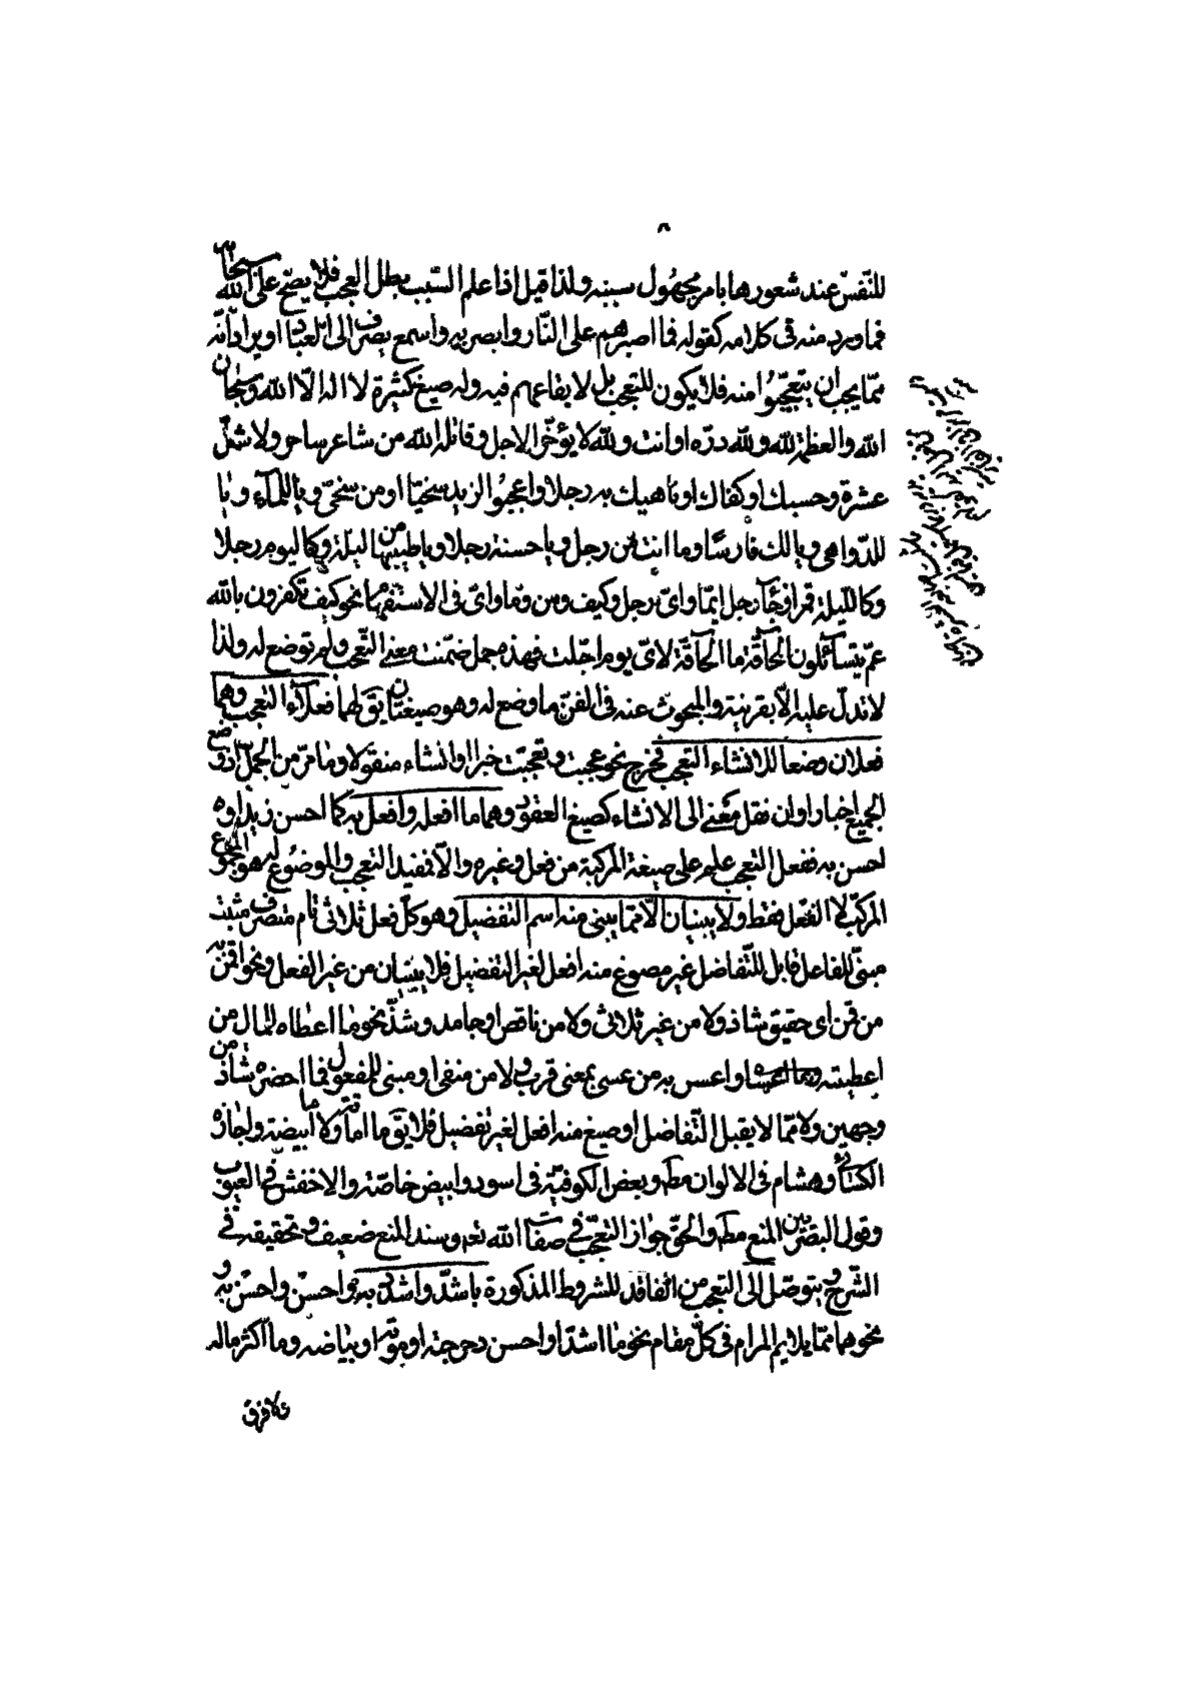 للنّفس عند شعورها بامر مجهول سببه ولذا قيل اذا علم السّبب بطل العجب فلا يصحّ على الله سبحانه
فما ورد منه فى كلامه كقوله فما اصبرهم على النّار وابصر به واسمع يصرف الى العباد او يراد انّه
ممّا يجب ان يتعجّبوا منه فلا يكون للتعجب بل لايقاعهم فيه وله صيغ كثيرة لا اله الّا الله وسبحان
الله والعظمة لله ولله درّه او انت ولله لا يؤخّر الاجل وقاتله الله من شاعر ساحر ولا شلّ
عشره وحسبك او كفاك او ناهيك به رجلا واعجبوا لزيد سخيّا او من سخىّ ويا للماء ويا
للدّواهى ويا لك فارسًا وما انت من رجل ويا حسنه رجلا ويا طيبها من ليلة وكاليوم رجلا
وكالليلة قمرا وجاء رجل ايّما واىّ رجل وكيف ومن وما واىّ فى الاستفهام نحو كيف تكفرون بالله
عمّ يتسائلون الحاقّة ما الحاقّة لاىّ يوم اجّلت فهذه جمل ضمّنت معنى التّعجب ولم توضع له ولذا
لا تدلّ عليه الّا بقرينة والمبحوث عنه فى الفنّ ما وضع له وهو صيغتان يق لهما فعلاء التعجب وهما
فعلان وضعا للانشاء التعجب فخرج نحو عجبت وتعجّبت خبرا او انشاء منقولا وما مرّ من الجمل اذ وضع
الجميع اخبارا وان نقل معنى الى الانشاء كصيغ العقود وهما ما افعله وافعل به كما احسن زيدا و
احسن به ففعل التعجب علم على صيغة المركبة من فعل وغيره والّا فمفيد التعجب والموضوع له هو المجموع
المركّب لا الفعل فقط ولا يبنيان الّا ممّا يبنى منه اسم التفضيل وهو كلّ فعل ثلاثى تام متصرف مثبت
مبنىّ للفاعل قابل للتّفاضل غير مصوغ منه افعل لغير التفضيل فلا يبنيان من غير الفعل ونحو اقمن به
من قمن اى حقيق شاذ ولا من غير ثلاثى ولا من ناقص او جامد وشذّ نحو ما اعطاه للمال من
اعطيته وما اعساه او اعس به من عسى بمعنى قرب ولا من منفى او مبنى للمفعول فما احضره شاذ من
وجهين ولا ممّا لا يقبل التّفاضل او صيغ منه افعل لغير تفضيل فلا يق ما اماته ولا ما ابيضه ولجازه
الكسائى وهشام فى الالوان مطه وبعض الكوفيّة فى اسود وابيض خاصّة والاخفش فى العيوب
وقول البصريين المنع مطه والحقّ جواز التعجّب فى صفات الله تعه وسند المنع ضعيف وتحقيقه فى
الشّرح ويتوصّل الى التعجب من الفاقد للشروط المذكورة باشدّ واشدد به واحسن واحسن به و
نحوهما ممّا يلايم المرام فى كلّ مقام نحو ما اشدّ او احسن دحرجته او موته او بياضه وما اكثر ماله
فلا فرق